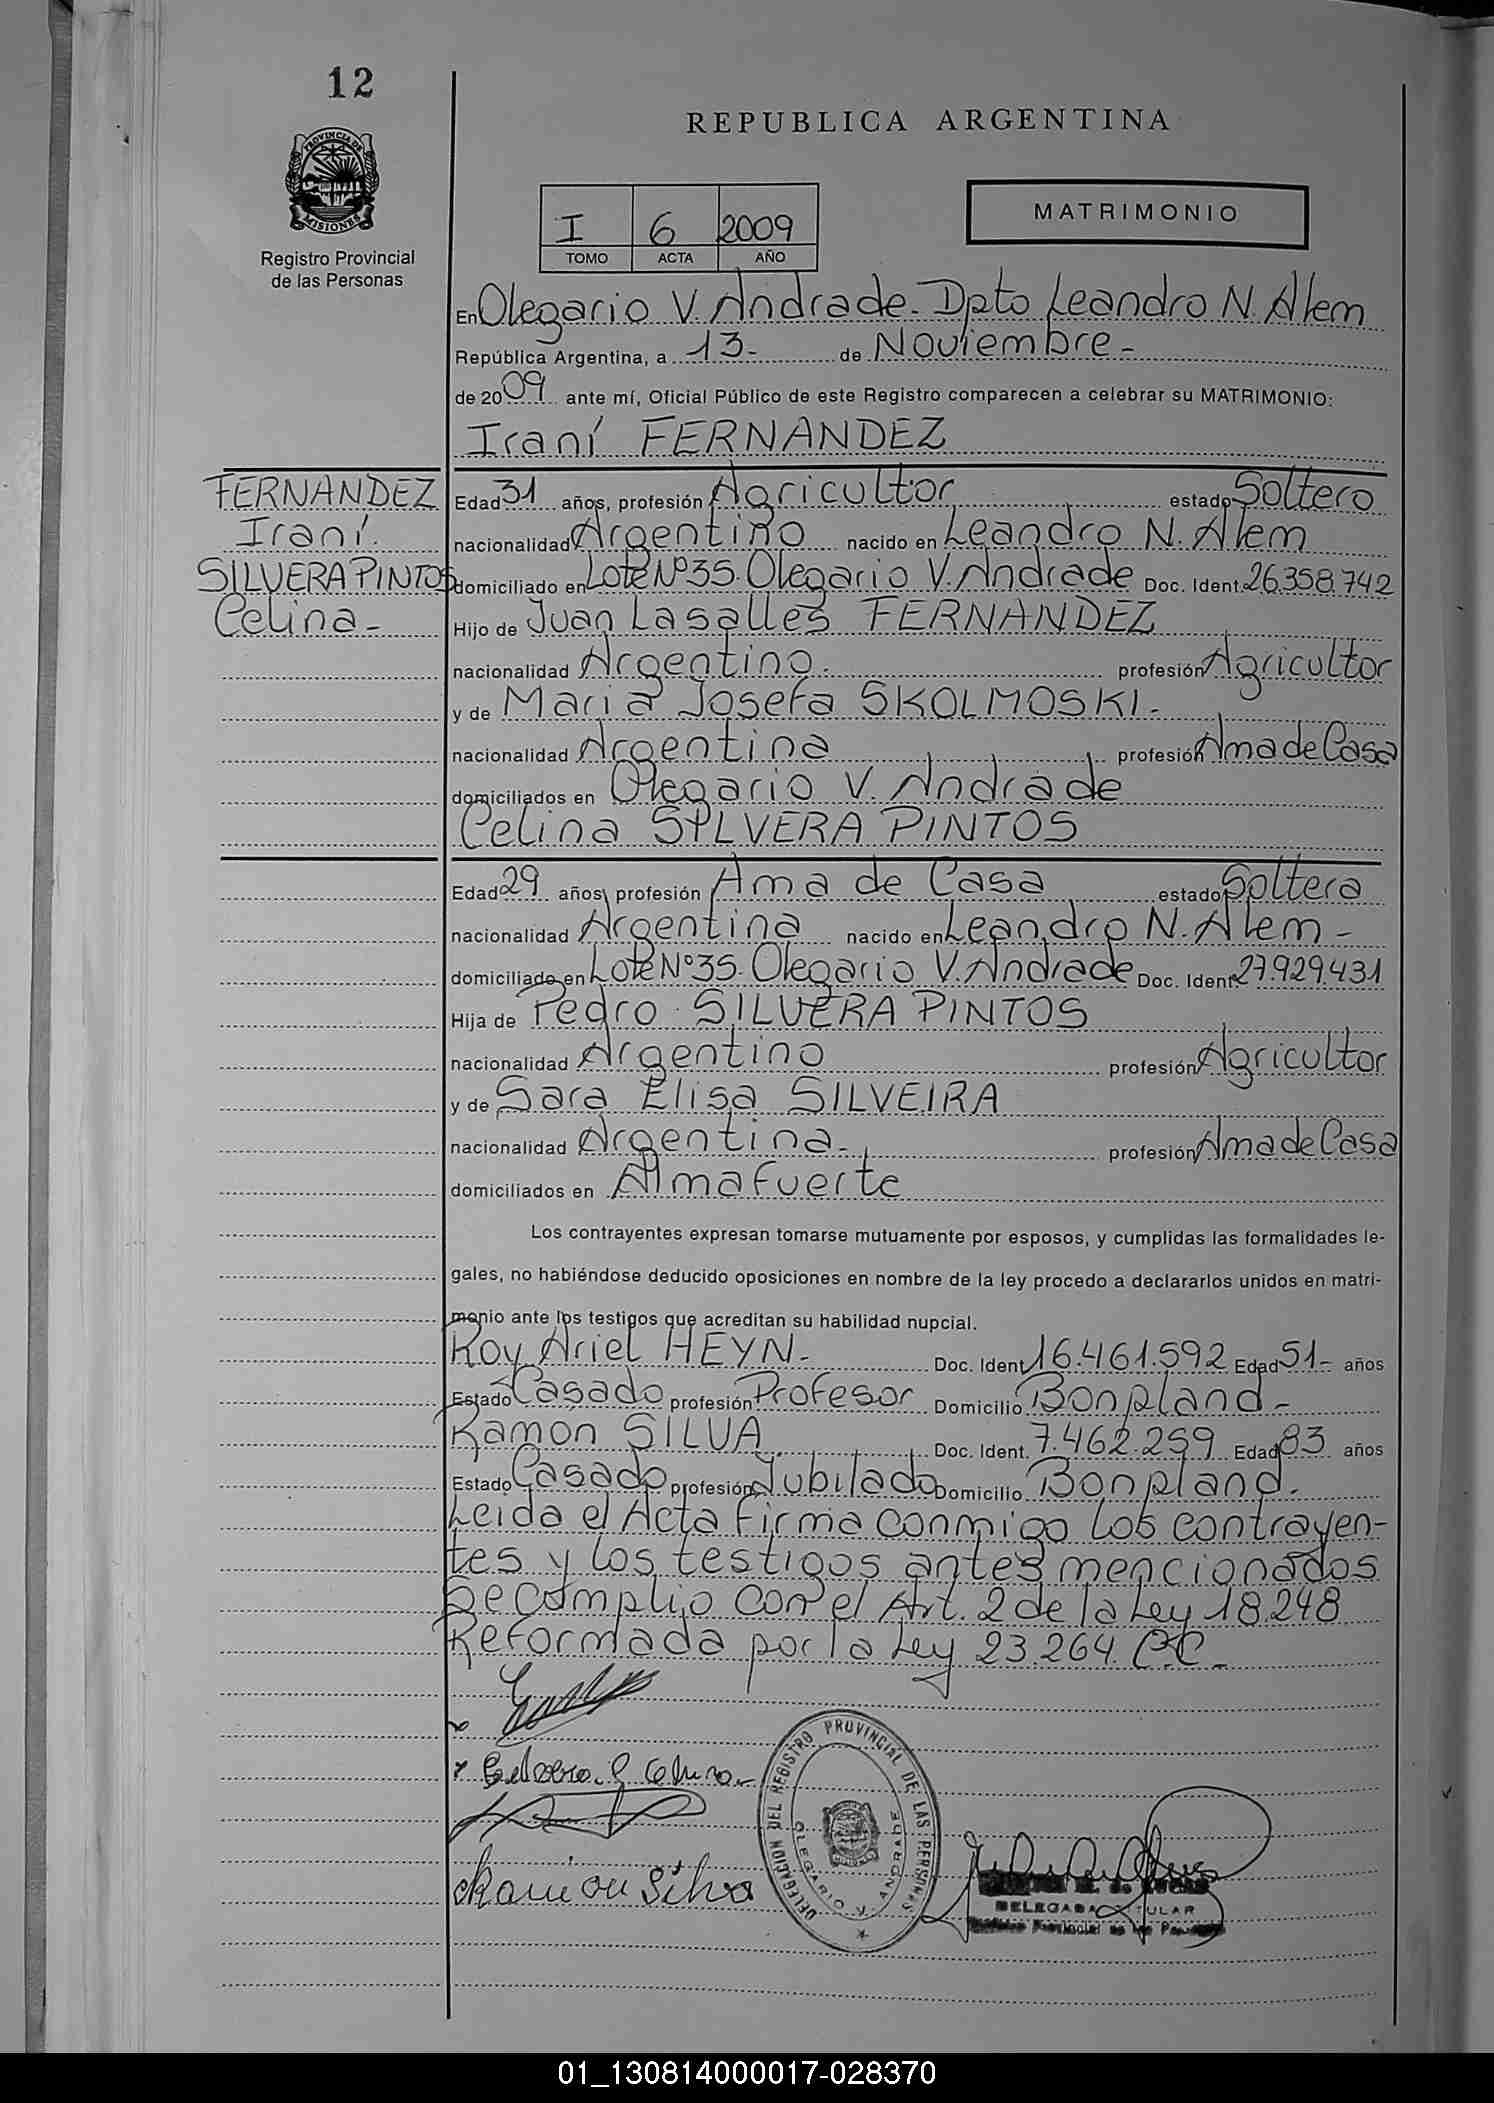 12
REPUBLICA ARGENTINA
PROVINCIA DE
MISIONES
Registro Provincial
de las Personas
I 6 2009
TOMO ACTA AÑO
MATRIMONIO
En Olegario V. Andrade. Dpto Leandro N. Alem
República Argentina, a 13- de Noviembre-
de 2009 ante mí, Oficial Público de este Registro comparecen a celebrar su MATRIMONIO:
Iraní FERNANDEZ
FERNANDEZ
Iraní.
SILVERA PINTOS
Celina-
Edad 31 años, profesión Agricultor estado Soltero
nacionalidad Argentino nacido en Leandro N. Alem
domiciliado en Lote Nº35. Olegario V. Andrade Doc. Ident. 26.358.742
Hijo de Juan Lasalles FERNANDEZ
nacionalidad Argentino. profesión Agricultor
y de Maria Josefa SKOLMOSKI-
nacionalidad Argentina profesión Ama de Casa
domiciliados en Olegario V. Andrade
Celina SILVERA PINTOS
Edad 29 años, profesión Ama de Casa estado Soltera
nacionalidad Argentina nacido en Leandro N. Alem-
domiciliado en Lote Nº35. Olegario V. Andrade Doc. Ident. 27.929.431
Hija de Pedro SILVERA PINTOS
nacionalidad Argentino profesión Agricultor
y de Sara Elisa SILVEIRA
nacionalidad Argentina- profesión Ama de Casa
domiciliados en Almafuerte
Los contrayentes expresan tomarse mutuamente por esposos, y cumplidas las formalidades le-
gales, no habiéndose deducido oposiciones en nombre de la ley procedo a declararlos unidos en matri-
monio ante los testigos que acreditan su habilidad nupcial.
Roy Ariel HEYN- Doc. Ident. 16.461.592 Edad 51- años
Estado Casado profesión Profesor Domicilio Bonpland-
Ramón SILVA Doc. Ident. 7.462.259 Edad 83 años
Estado Casado profesión Jubilado Domicilio Bonpland.
Leida el Acta firma conmigo los contrayen-
tes y los testigos antes mencionados
Se complio con el Art. 2 de la Ley 18.248
Reformada por la Ley 23.264. C.C-
Ramon Silva
DELEGACION DEL REGISTRO PROVINCIAL DE LAS PERSONAS
OLEGARIO V. ANDRADE
DELEGADA TITULAR
01_130814000017-028370